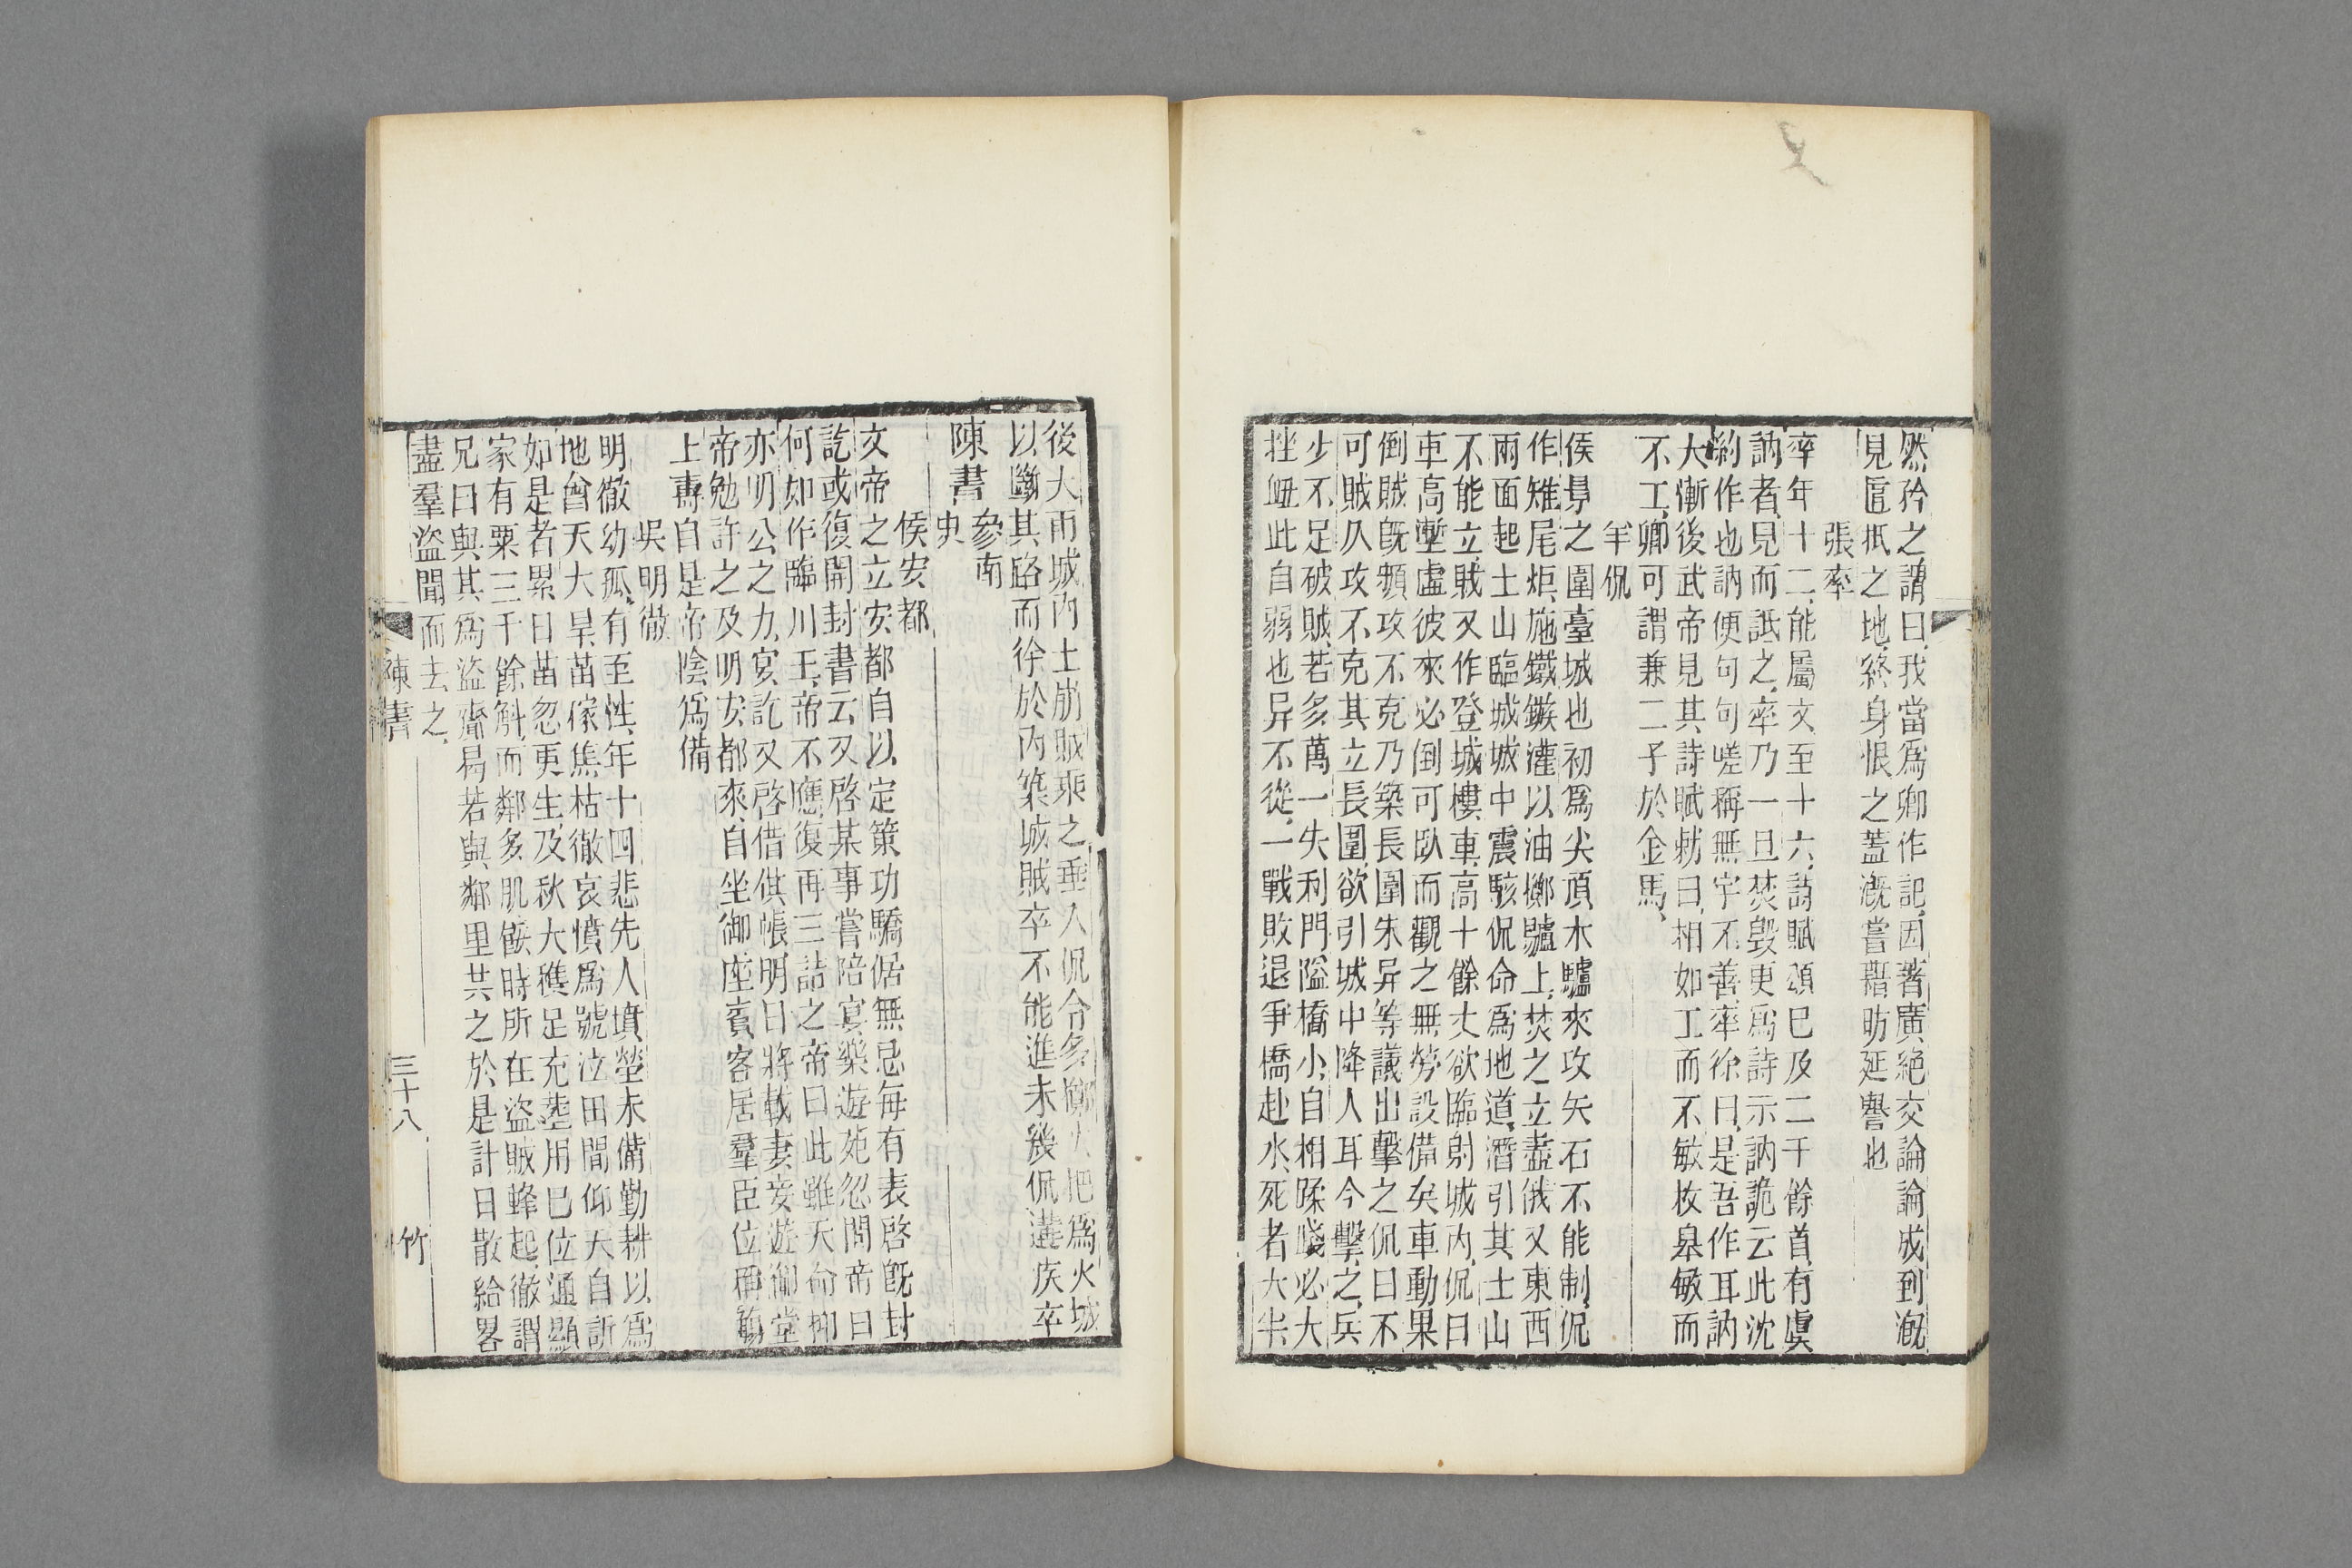 然矜之謂曰我當爲卿作記因著廣絶交論論成到漑
見匳抵之地終身恨之蓋漑嘗藉昉延譽也
張率
率年十二能屬文至十六詩賦頌巳及二千餘首有虞
訥者見而詆之率乃一旦焚毁更爲詩示訥詭云此沈
約作也訥便句句嗟稱無字不善率徐曰是吾作耳訥
大漸後武帝見其詩賦勑曰相如工而不敏枚皋敏而
不工卿可謂兼二子於金馬
羊侃
侯景之圍臺城也初爲尖頂木驢來攻矢石不能制侃
作雉尾炬施鐵鏃灌以油擲驢上焚之立盡俄又東西
兩面起土山臨城城中震駭侃命爲地道潛引其土山
不能立賊又作登城樓車高十餘丈欲臨射城内侃曰
車高塹虛彼來必倒可臥而觀之無勞設備矣車動果
倒賊旣頻攻不克乃築長圍朱异等議出擊之侃曰不
可賊久攻不克其立長圍欲引城中降人耳今擊之兵
少不足破賊若多萬一失利門隘橋小自相蹂踐必大
挫衄此自弱也异不從一戰敗退爭橋赴水死者大半
後大雨城内土崩賊乘之垂入侃令多擲火把爲火城
以斷其路而徐於内築城賊卒不能進未幾侃遘疾卒
陳書 參南史
侯安都
文帝之立安都自以定策功驕倨無忌每有表啓旣封
訖或復開封書云又啓某事嘗陪宴樂遊苑忽問帝曰
何如作臨川王帝不應復再三詰之帝曰此雖天命抑
亦明公之力宴訖又啓借供帳明日將載妻妾遊御堂
帝勉許之及明安都來自坐御座賓客居羣臣位稱觴
上壽自是帝陰爲備
吳明徹
明徹幼孤有至性年十四悲先人墳塋未備勤耕以爲
地會天大旱苗稼焦枯徹哀憤爲號泣田間仰天自訴
如是者累日苗忽更生及秋大穫足充塟用巳位通顯
家有粟三千餘斛而鄰多肌餒時所在盜賊蜂起徹謂
兄曰與其爲盜齎曷若與鄰里共之於是計日散給畧
盡羣盜聞而去之
陳書 三十八 竹